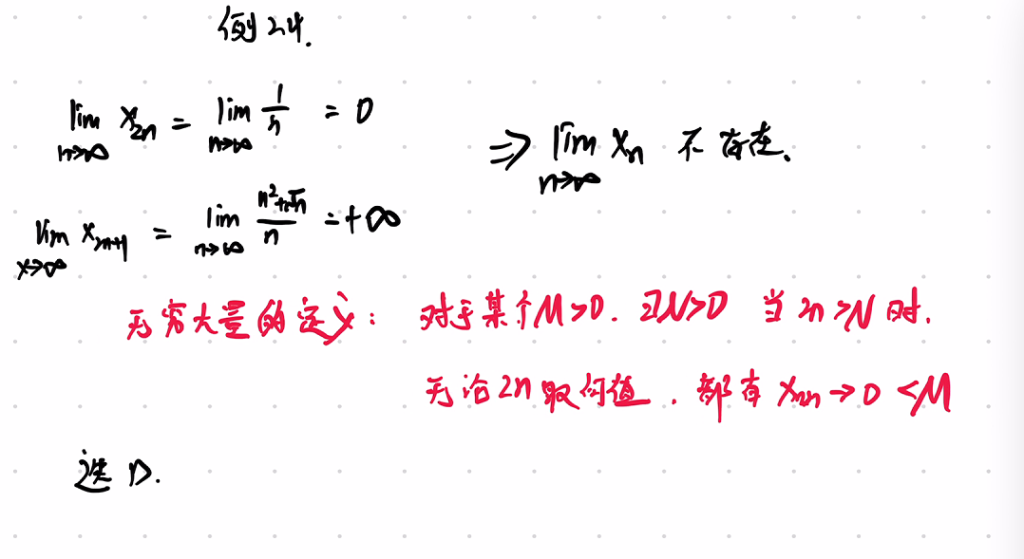 例24.
lim n→∞ x_{2n} = lim n→∞ 1/n = 0
⇒ lim n→∞ x_n 不存在.
lim x→∞ x_{2n+1} = lim n→∞ (n²+√n)/n = +∞
无穷大量的定义: 对于某个M>0. ∃N>0 当2n>N时.
无论2n取何值. 都有 x_{2n}→0 <M
选D.